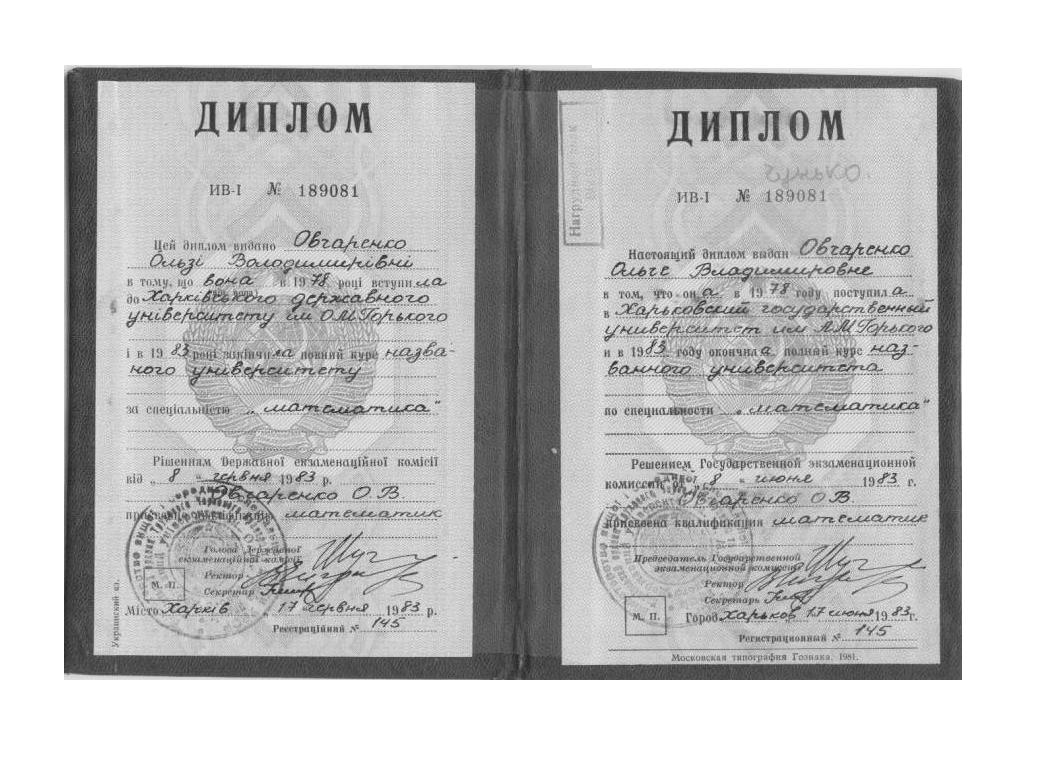 ДИПЛОМ
ИВ-I № 189081
Цей диплом видано Овчаренко
Ользі Володимирівні
в тому, що вона в 1978 році вступила
до Харківського державного
університету ім О.М.Горького
і в 1983 році закінчила повний курс назва-
ного університету
за спеціальністю „математика"
Рішенням Державної екзаменаційної комісії
від „8" червня 1983 р.
Овчаренко О.В.
математик
Голова Державної
екзаменаційної комісії
Ректор
Секретар
М. П.
Місто Харків „17" червня 1983 р.
Реєстраційний № 145
Украинский яз.
ДИПЛОМ
ИВ-I № 189081
Нагрудный знак
Настоящий диплом выдан Овчаренко
Ольге Владимировне
в том, что она в 1978 году поступила
в Харьковский государственный
университет им А.М.Горького
и в 1983 году окончила полный курс наз-
ванного университета
по специальности „математика"
Решением Государственной экзаменационной
комиссии от „8" июня 1983 г.
Овчаренко О.В.
присвоена квалификация математик
Председатель Государственной
экзаменационной комиссии
Ректор
Секретарь
М. П.
Город Харьков 17 июня 1983 г.
Регистрационный № 145
Московская типография Гознака. 1981.